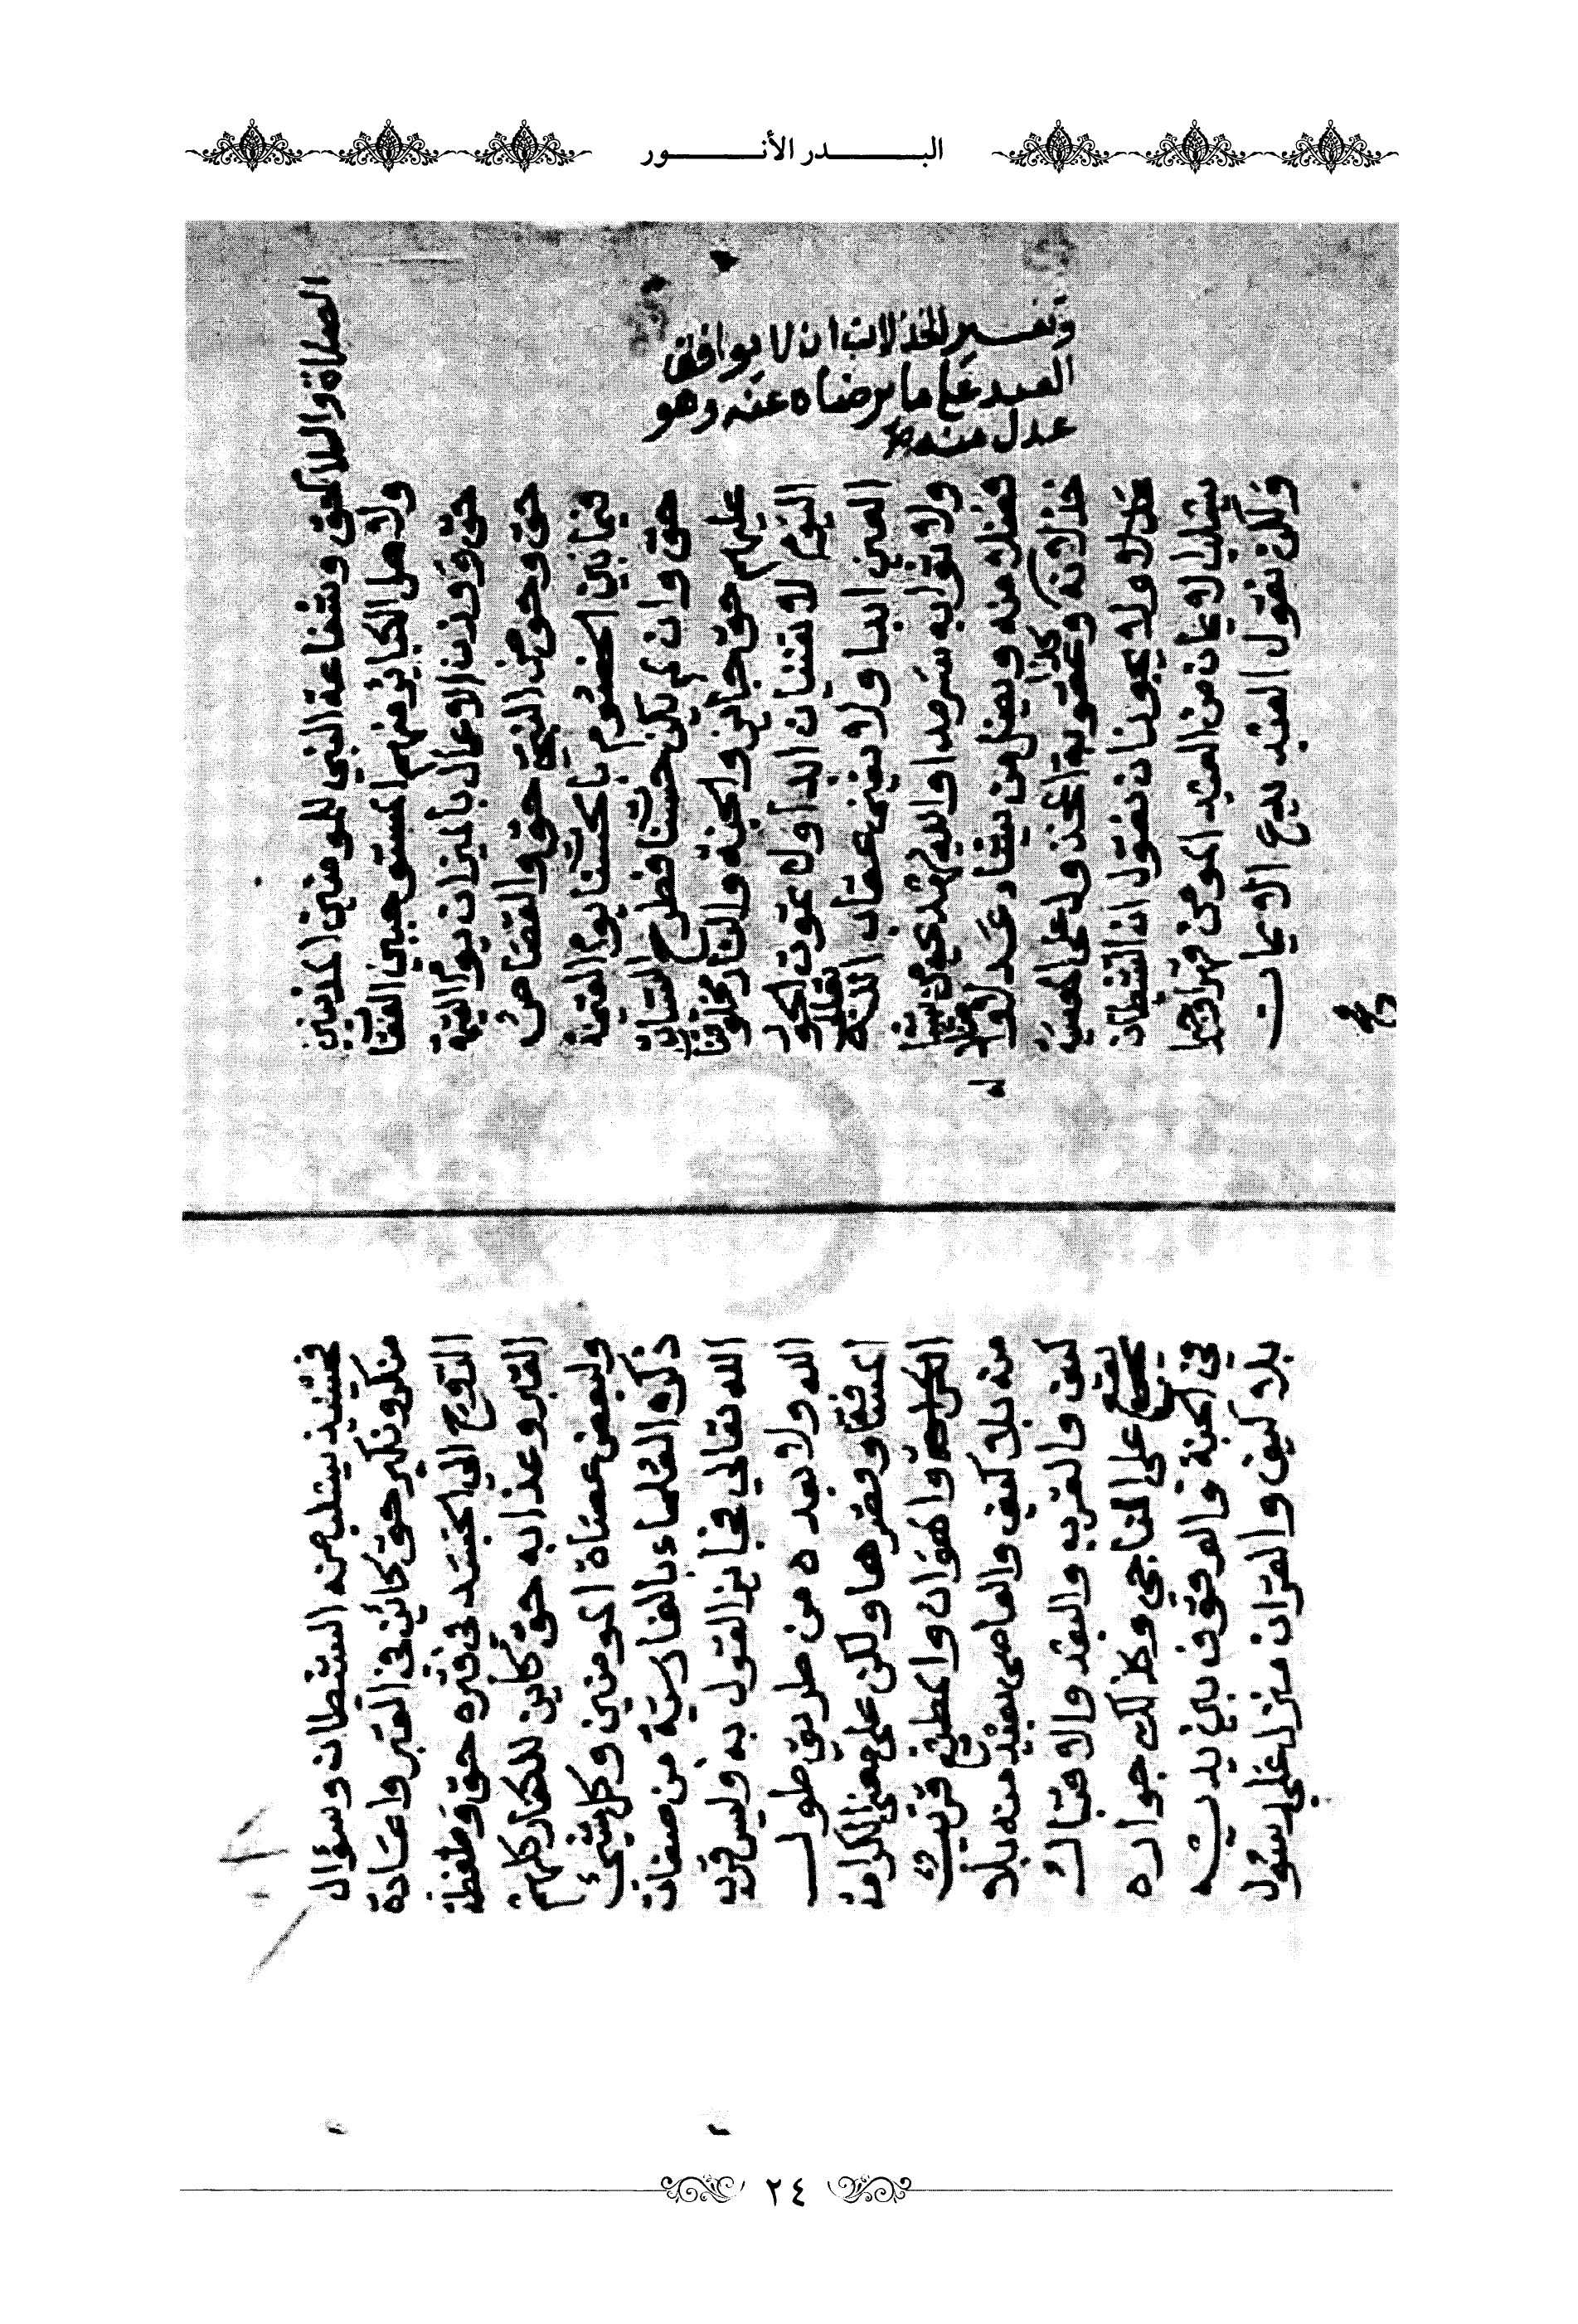 البـــــدر الأنـــــور
وتفسير الخذلان ان لا يوافق
العبد على ما يرضاه عنه وهو
عدل منه
الصلاة والسلام حق وشفاعة النبي للمومنين المذنبين
ولاهل الكبائر منهم المستوجبين العقا
حق ووزن الاعمال بالميزان يوم القيمة
حق وحوض النبي حق والقصاص
فيما بين الخصوم بالحسنا يوم القيمة
حق وان لم يكن حسنا فطرح السيات
عليهم حق جايز والجنة والنار مخلوقتا
اليوم لا تفنيان ابدا ولا تموت الحور
العين ابدا ولا يفنى عقاب الله تعالى
ولا ثوابه سرمدا والله يهدي من يشا
فضلا منه ويضل من يشاء عدلا منه واضلا له
خذلانه وكذا عقوبة المخذول على المعصية
ولا يجوز ان نقول ان الشيطان
يسلب الايمان من العبد المومن قهرا وجبرا
ولكن نقول العبد يدع الايمان
فحينئذ يسلب منه الشيطان وسؤال
منكر ونكير حق كائن في القبر واعادة
الروح الي الجسد في قبره حق وضغطة
القبر وعذابه حق كاين للكفار كلهم
ولبعض عصاة المومنين وكل شيء
ذكره العلماء بالفارسية من صفات
الله تعالي فجايز القول به وليس قرب
الله ولا بعده من طريق طول
المسافة وقصرها ولكن على معنى الكرامة
والهوان والمطيع قريب
منه بلا كيف والعاصي بعيد منه بلا
كيف والقرب والبعد والاقبال
يقع على المناجي وكذلك جواره
في الجنة والوقوف بين يديه
بلا كيف والقران منزل على رسول
٢٤